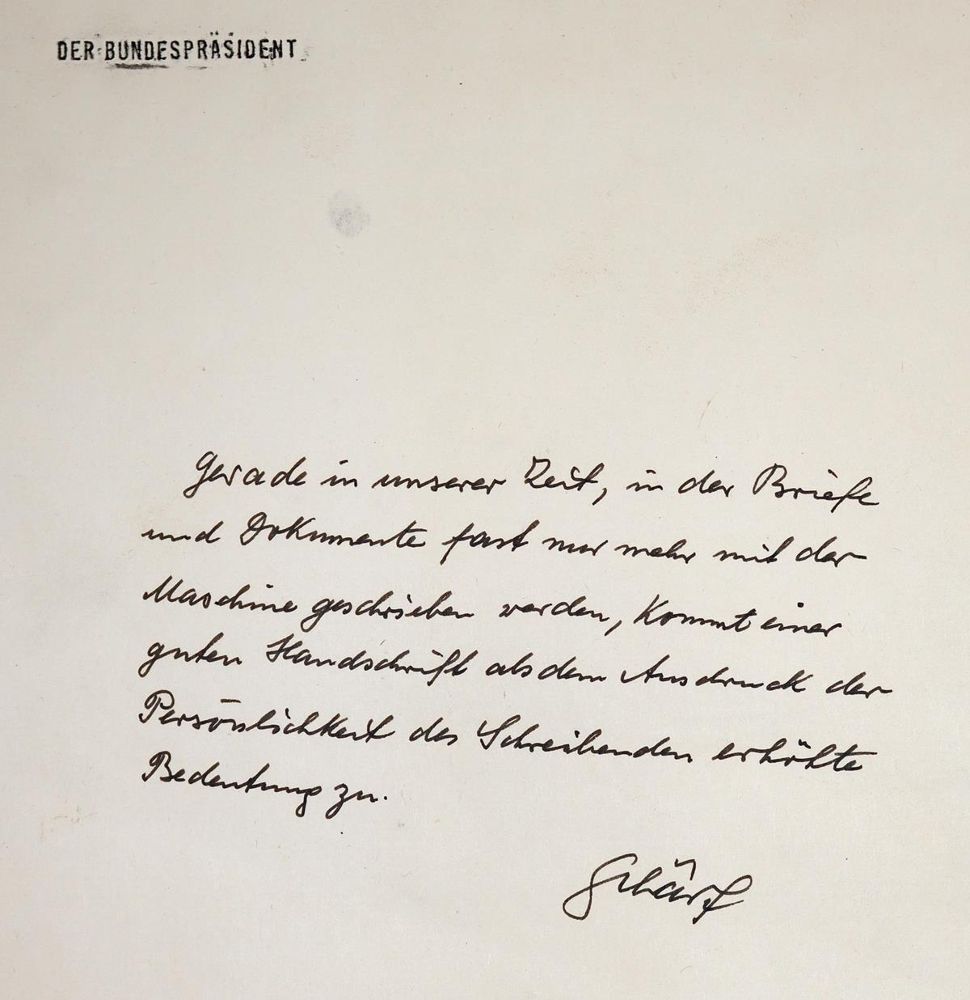 DER BUNDESPRÄSIDENT
Gerade in unserer Zeit, in der Briefe
und Dokumente fast nur mehr mit der
Maschine geschrieben werden, kommt einer
guten Handschrift als dem Ausdruck der
Persönlichkeit des Schreibenden erhöhte
Bedeutung zu.
Schärf